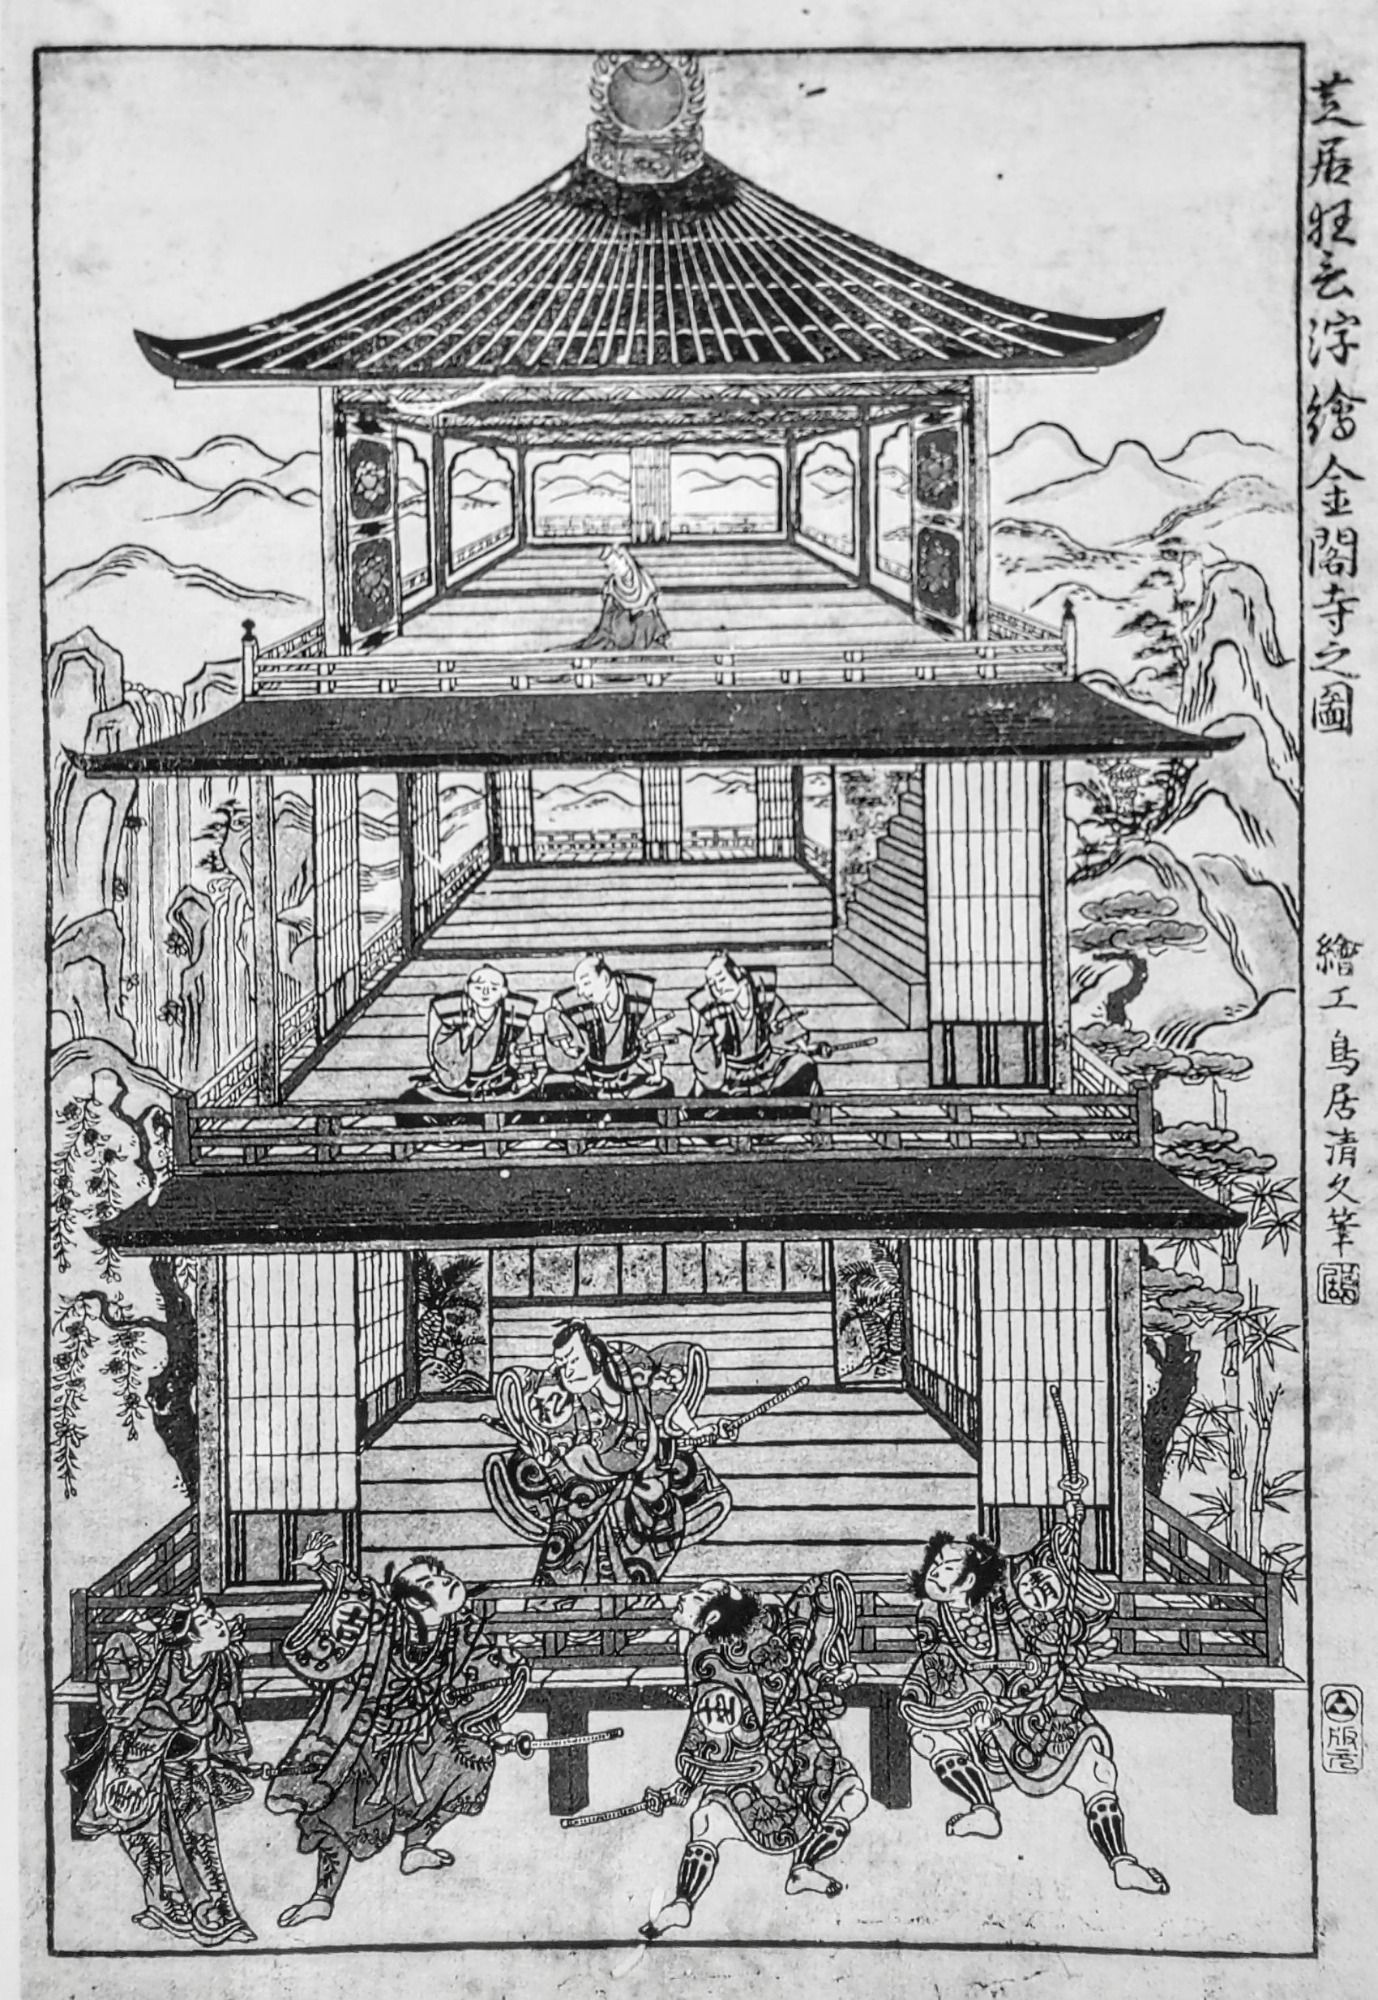 芝居狂言浮繪金閣寺之圖
繪工鳥居清久筆
版元